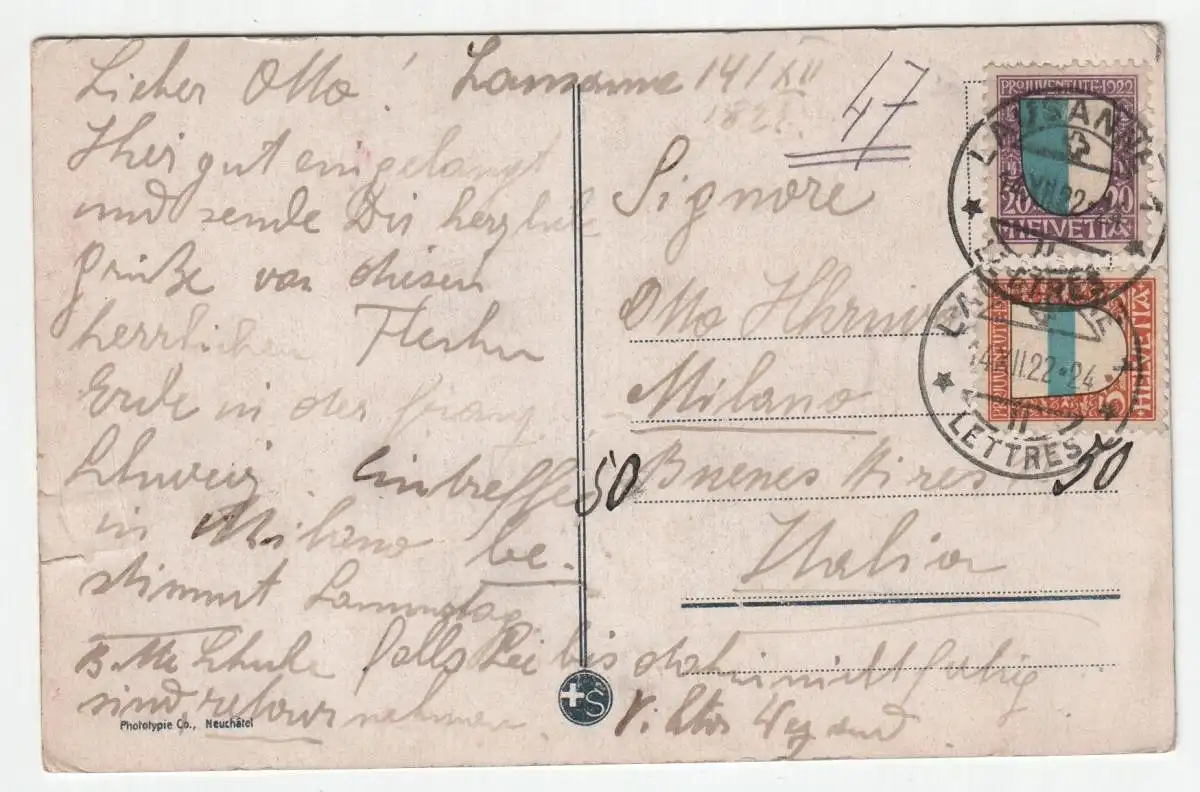 Lieber Otto! Lausanne 14/XII
192
47
Hier gut eingelangt
und sende Dir herzliche
Grüße von diesem
herrlichen Flecken
Erde in der franz.
Schweiz. Eintreffe
in Milano be-
stimmt Samstag
Bitte Schuhe falls Sie bis dahin nicht fertig
sind, retour nehmen
Viktor
Signore
Otto
Milano
50 Buenos Aires 50
Italia
PRO JUVENTUTE 1922
20 20
HELVETIA
LAUSANNE 1
14.XII.22-24
LETTRES
PRO JUVENTUTE
5
HELVETIA
LAUSANNE 1
14.XII.22-24
II
LETTRES
Phototypie Co., Neuchâtel
S